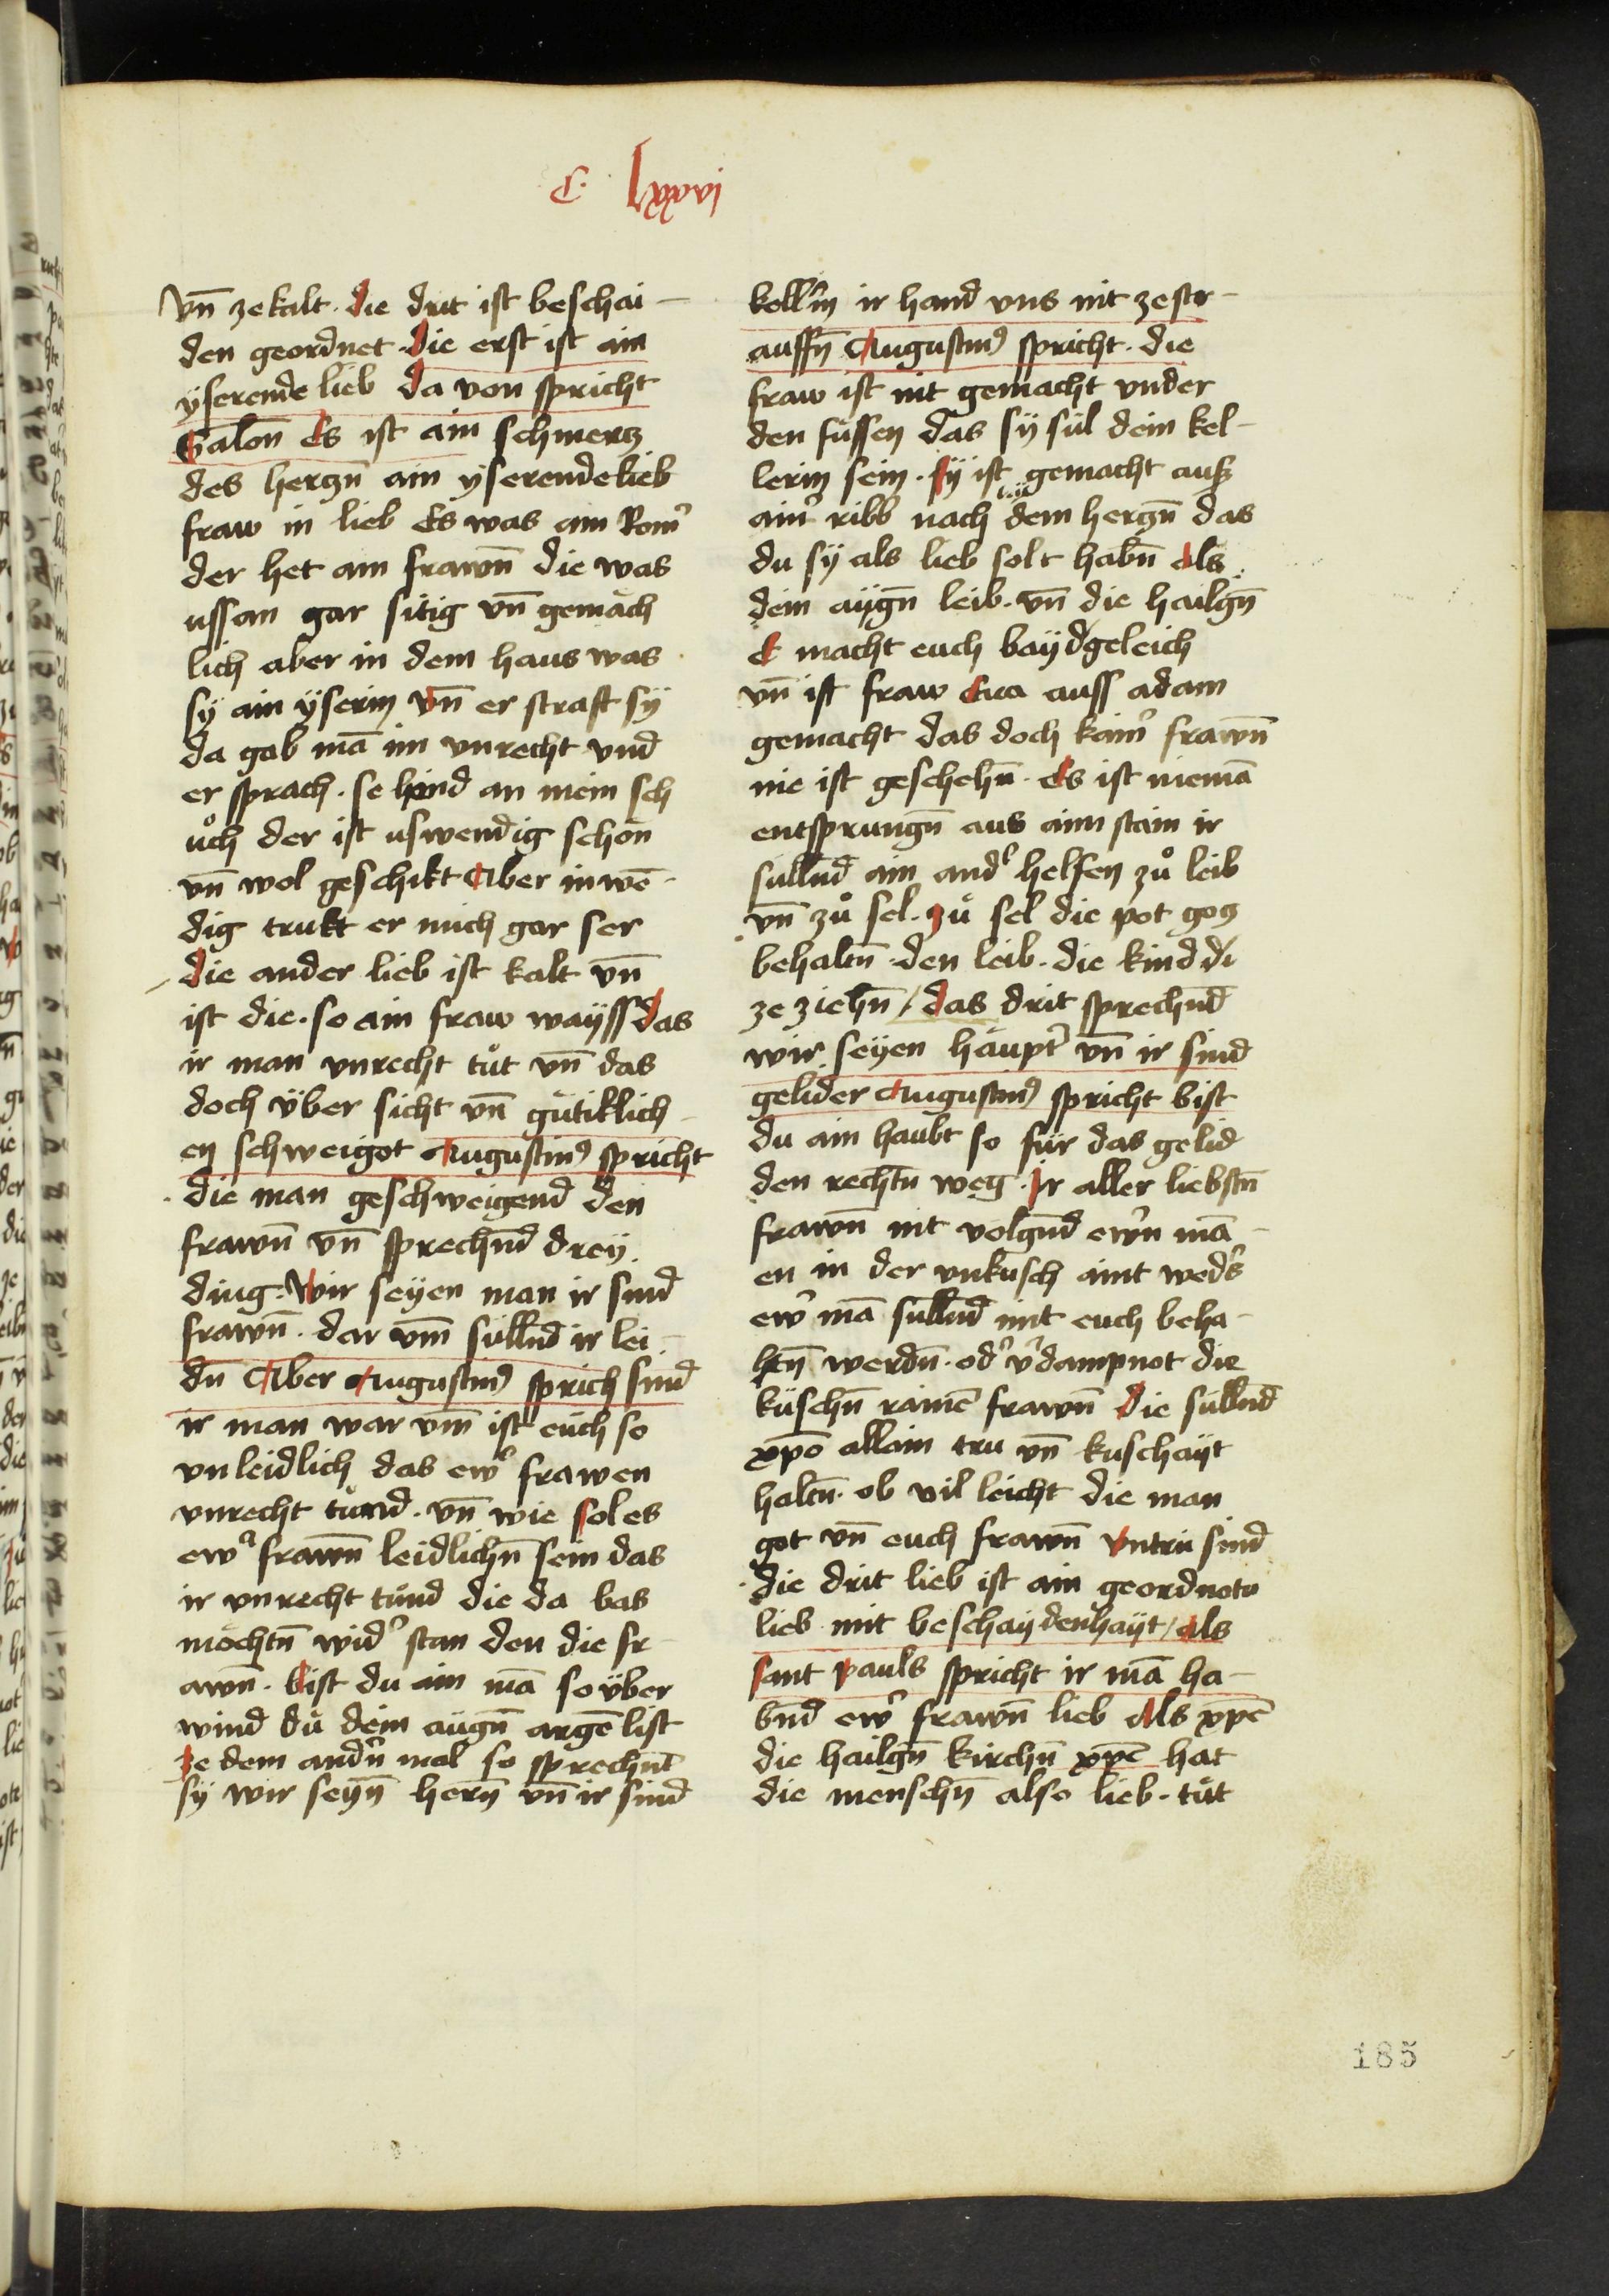 C. lxxvi
vn̄ ze kalt. die drit ist beschai-
den geordnet. die erst ist ain
ÿferende lieb da von spricht
Salon̄ Es ist ain schmertz
des hertzn̄ ain ÿferende lieb
fraw in lieb Es was ain Rom̛
der het ain frawn̄ die was
ussan gar sitig vn̄ gemäch
lich aber in dem haus was
sÿ ain ÿferin vn̄ er straft sÿ
da gab mā im vnrecht vnd
er sprach. sehend an mein sch
ůch der ist uswendig schön
vn̄ wol geschikt Aber inwē-
dig trukt er mich gar ser
die ander lieb ist kalt vn̄
ist die. so ain fraw waÿss das
ir man vnrecht tůt vn̄ das
doch v̈ber sicht vn̄ gütiklich
en schweigot Augustin⁹ spricht
die man geschweigend den
frawn̄ vn̄ sprechnd̄ dreÿ
ding. Wir seÿen man ir sind
frawn̄. dar vm̄ süllnd̄ ir lei-
dn̄ Aber Augustin⁹ sprich sind
ir man war vm̄ ist euch so
vnleidlich das ew̛ frawen
vnrecht tůnd. vn̄ wie sol es
ew̛ frawn̄ leidlichn̄ sein das
ir vnrecht tůnd die da bas
möchtn̄ wid̛ stan den die fr
awn̄. bist du ain mā so v̈ber
wind du dein aÿgn̄ argē list
Ze dem andn̛ mal so sprechnt̄
sÿ wir seÿn̄ hern̄ vn̄ ir sind
kelln̛in ir hand vns nit ze str-
auffn̄ Augustin⁹ spricht. die
fraw ist nit gemacht vnder
den füssen das sÿ sül dein kel-
lerin sein. sÿ ist gemacht auß
ain̛ ribb nach bÿ dem hertzn̄ das
du sÿ als lieb solt habn̄ als
dein aÿgn̄ leib. vn̄ die hailgn̄
E macht euch baÿd geleich
vn̄ ist fraw Eua auss adam
gemacht das doch kain̛ frawn̄
nie ist geschehn̄. Es ist niemā
entsprungn̄ aus ainn stain ir
süllnd̄ ain and̛ helfen zů leib
vn̄ zů sel. zů sel die pot gotz
behaltn̄. den leib. die kind d̛
ze ziehn̄ / das drit sprechnd̄
wir seÿen häupt̛ vn̄ ir sind
gelider Augustin⁹ spricht bist
du ain haubt so für das gelid
den rechtn̄ weg. Ir aller liebstn̄
frawn̄ nit volgnd̄ ewn̛ mā-
en in der vnkusch aint wed̛s
ew̛ mā süllnd̄ mit euch beha-
ltn̄ werdn̄. od̛ v̛dampnot die
küschn̄ rainē frawn̄ die süllnd̄
xp̄o allain tru vn̄ kuschaÿt
haltn̄. ob vil leicht die man
got vn̄ euch frawn̄ vntrü sind
die drit lieb ist ain geordnote
lieb mit beschaÿdenhaÿt / als
sant pauls spricht ir mā ha-
bnd̄ ew̛ frawn̄ lieb Als xp̄c
die hailgn̄ kirchn̄ xp̄c hat
die menschn̄ also lieb. tůt
185